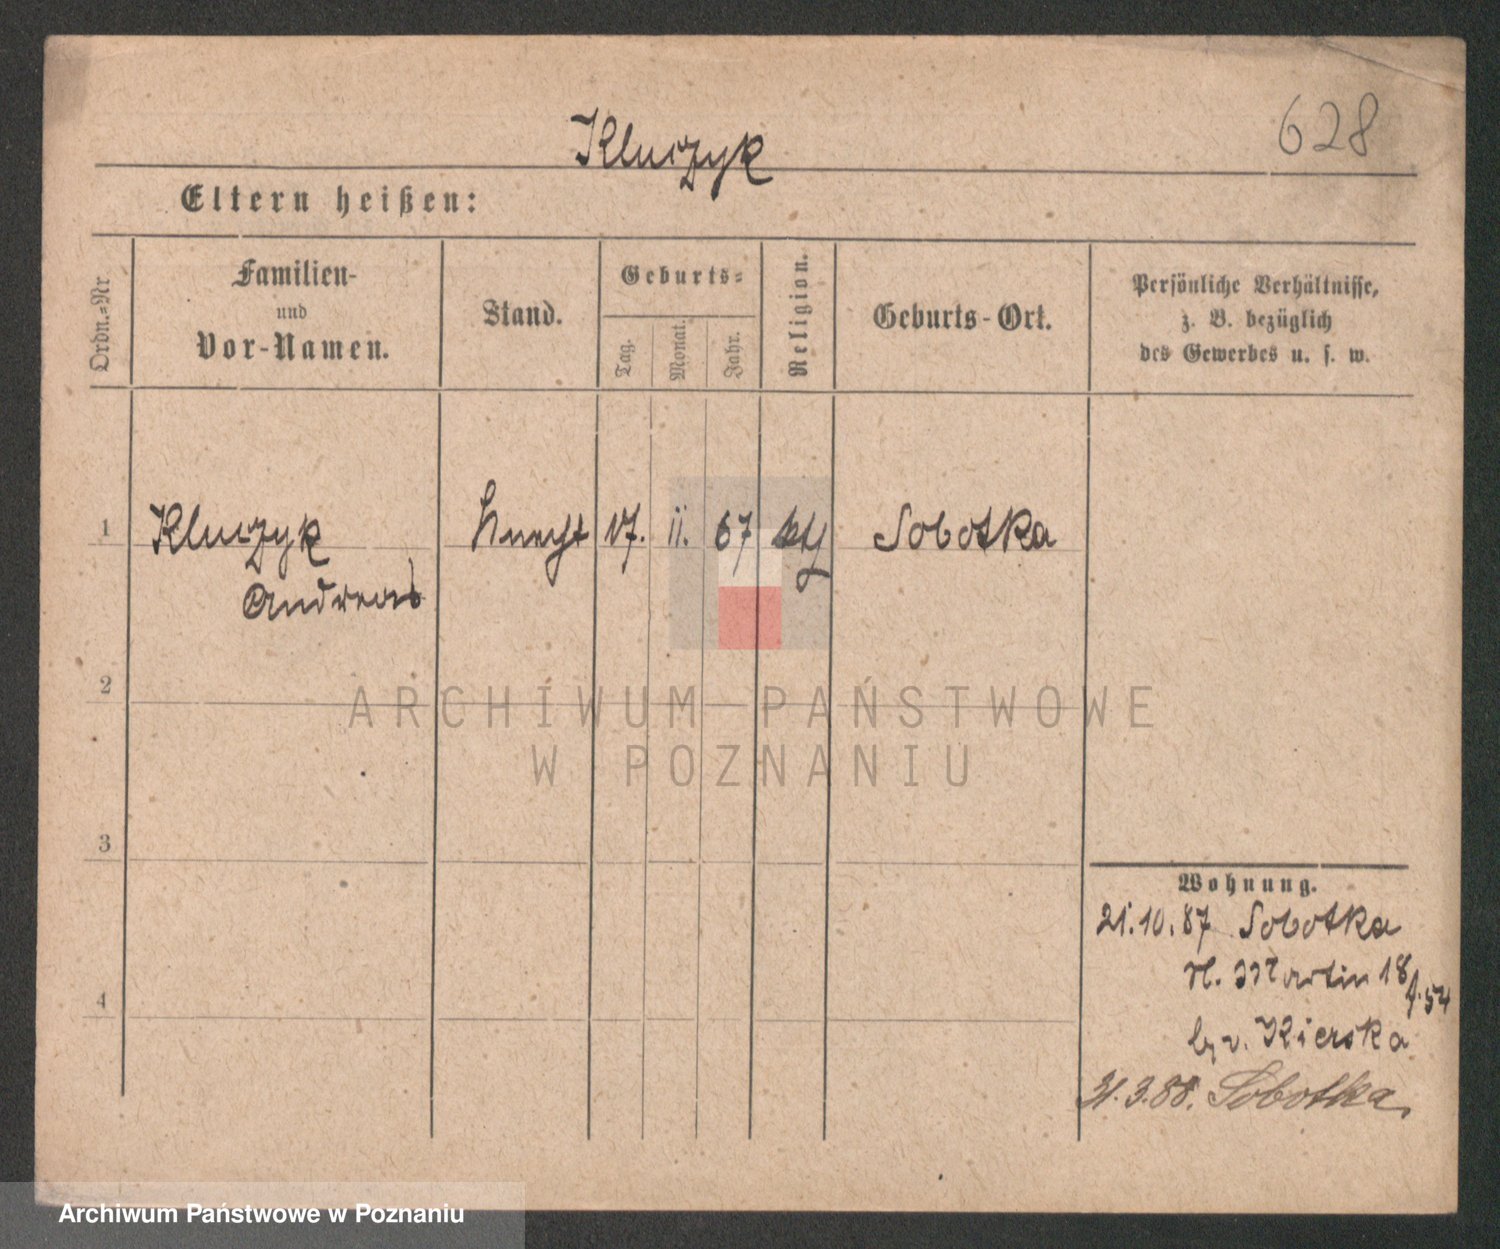 628
Kluczyk
Eltern heißen:
Ordn.=Nr
Familien-
und
Vor-Namen.
Stand.
Geburts=
Tag.
Monat.
Jahr.
Religion.
Geburts-Ort.
Persönliche Verhältnisse,
z. B. bezüglich
des Gewerbes u. s. w.
1 Kluczyk Knecht 17. 11. 67 Sobotka
Andreas
2
ARCHIWUM PAŃSTWOWE
W POZNANIU
3
Wohnung.
21.10.87 Sobotka
Martin 18
4
Kierska
31.3.88. Sobotka
Archiwum Państwowe w Poznaniu